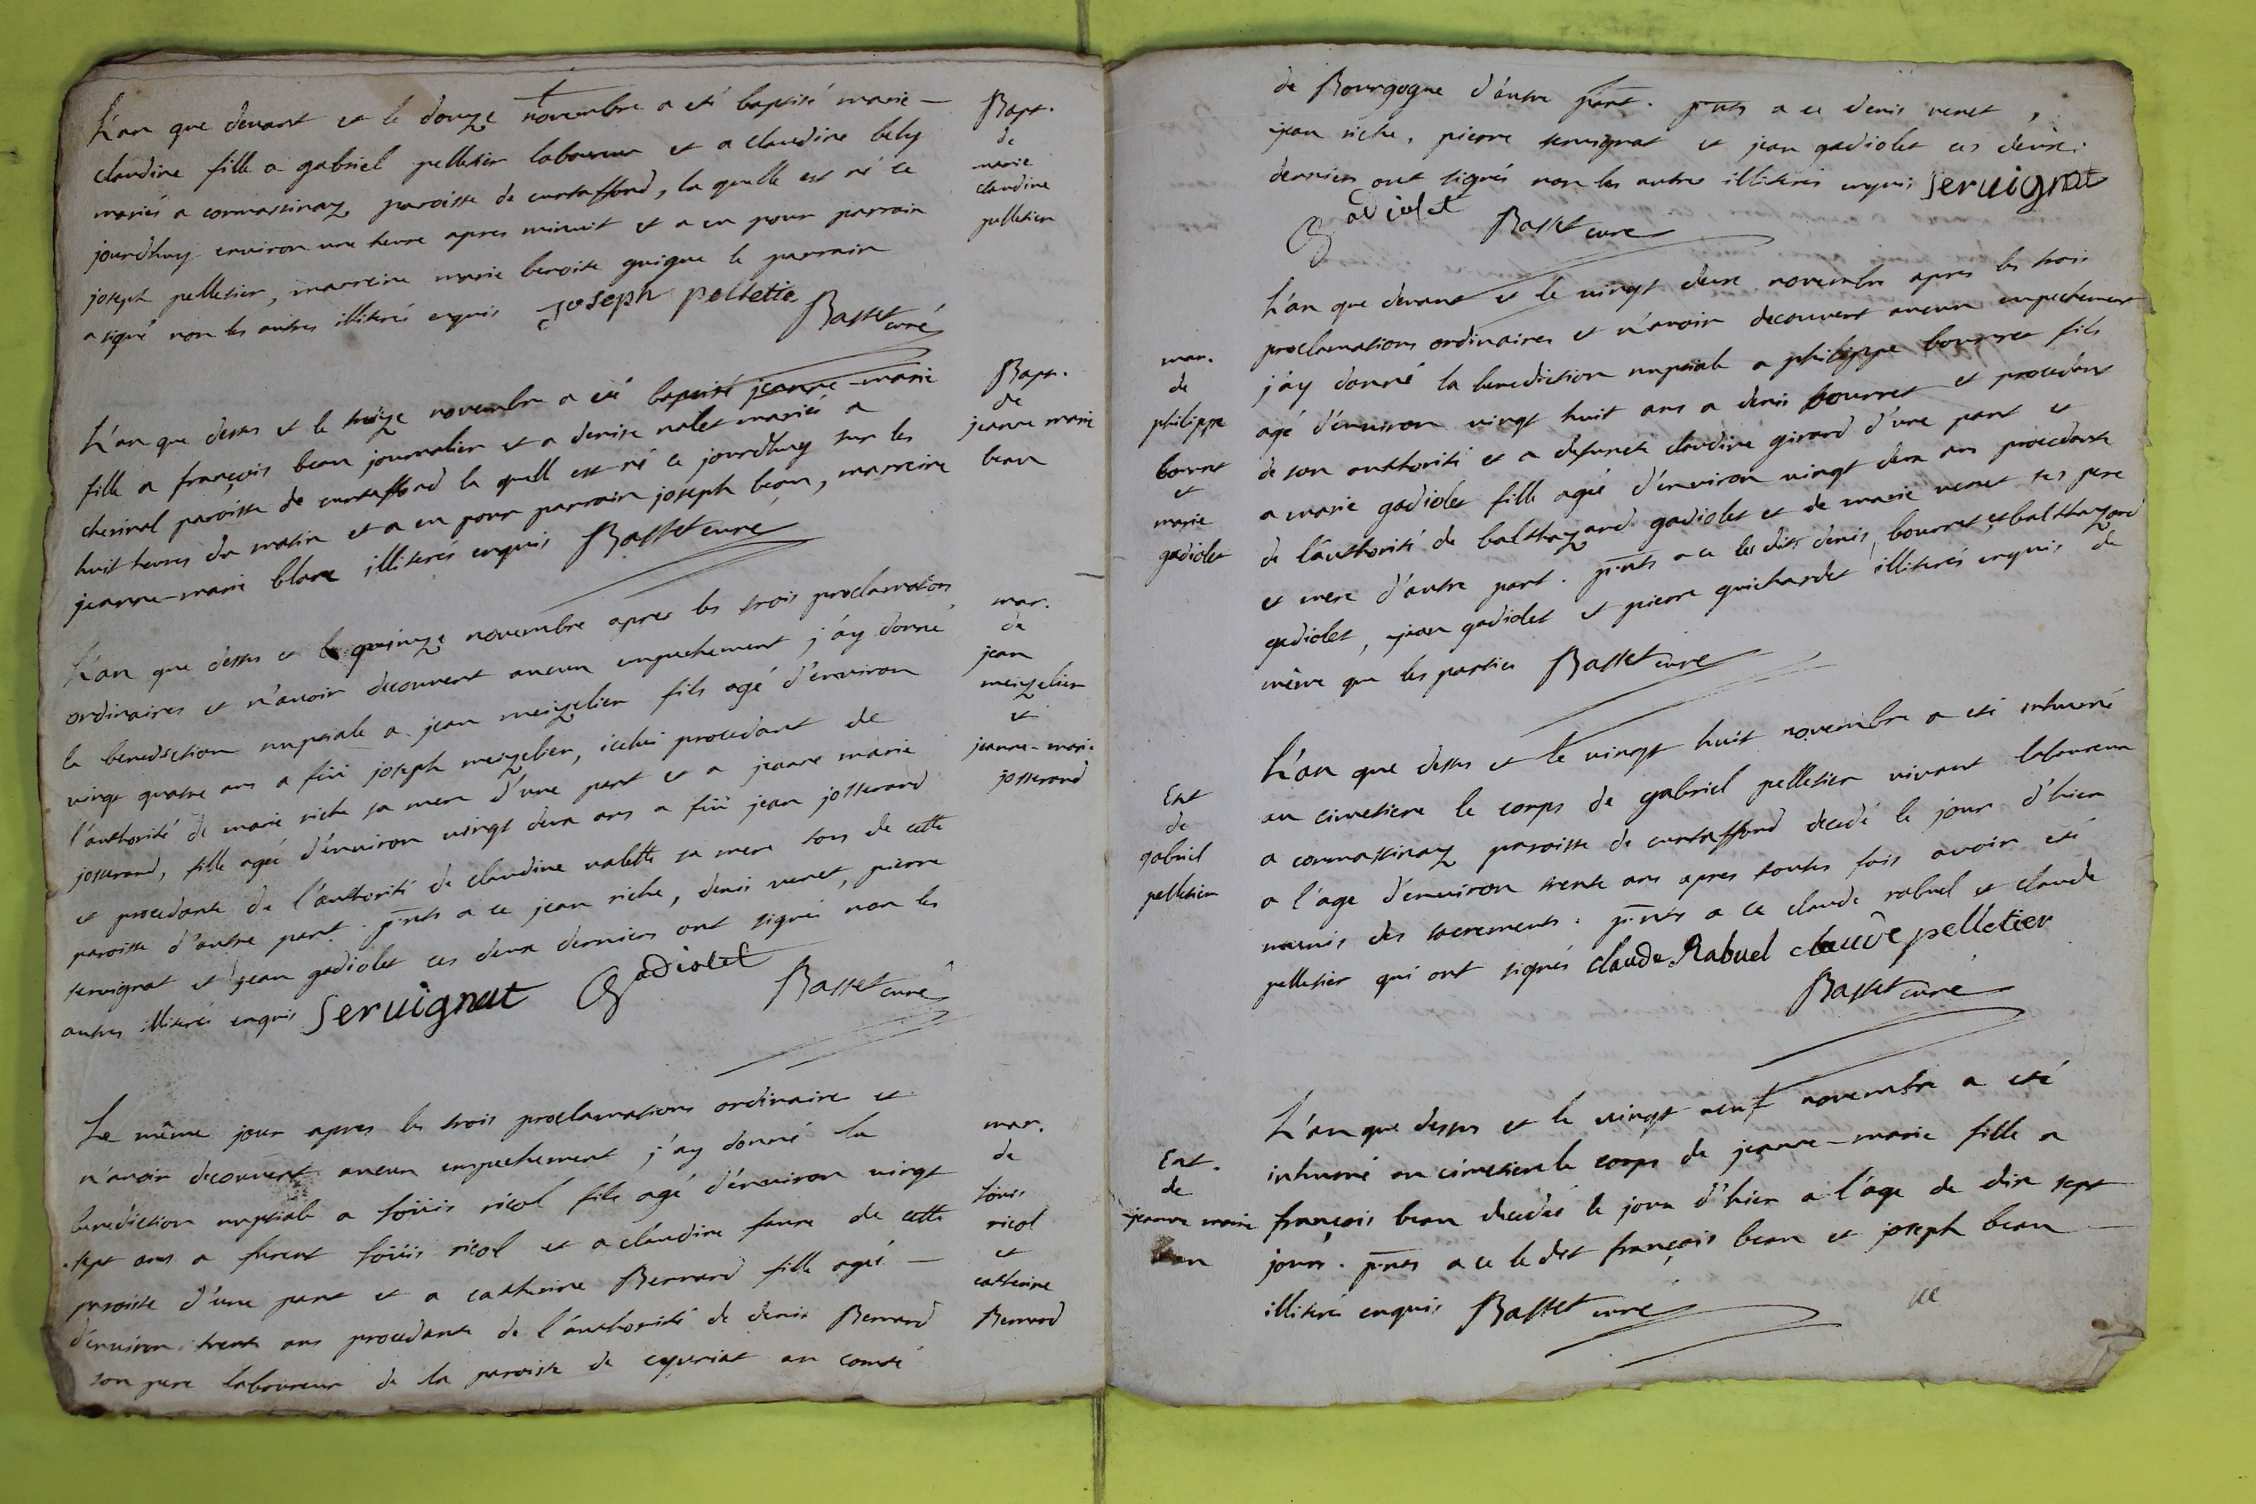 L'an que devant et le douze novembre a eté baptisé marie-
claudine fille a gabriel pelletier laboureur et a claudine bely
mariés a cormassinaz paroisse de curtaffond, la quelle est né ce
jourdhuy environ une heure apres minuit et a eu pour parrain
joseph pelletier, marreine marie benoite guigue le parrain
a signé non les autres illiterés enquis joseph pelletie
Basset curé
Bapt.
de
marie
claudine
pelletier
L'an que dessus et le treize novembre a eté baptisé jeanne-marie
fille a françois bean journalier et a denise nalet mariés a
cherinal paroisse de curtaffond la quell est né ce jourdhuy sur les
huit heures du matin et a eu pour parrain joseph bean, marreine
jeanne-marie blanc illiterés enquis Basset curé
Bapt.
de
jeanne marie
bean
L'an que dessus et le quinze novembre apres les trois proclamations
ordinaires et n'avoir decouvert aucun empechement j'ay donné
la benediction nuptiale a jean meizelier fils agé d'environ
vingt quatre ans a fûi joseph meizelier, icelui procedant de
l'authorité de marie riche sa mere d'une part et a jeanne marie
josserand, fille agée d'environ vingt deux ans a fûi jean josserand
et procedante de l'authorité de claudine valette sa mere tous de cette
paroisse d'autre part. p-nts a ce jean riche, denis venet, pierre
servignat et jean gadiolet ces deux derniers ont signés non les
autres illiterés enquis Seruignat Gadiolet
Basset curé
mar.
de
jean
meizelier
et
jeanne-marie
josserand
Le même jour apres les trois proclamations ordinaire et
n'avoir decouvert aucun empechement j'ay donné la
benediction nuptiale a loüis nicol fils agé d'environ vingt
sept ans a furent loüis nicol et a claudine faure de cette
paroisse d'une part et a catherine Bernard fille agée -
d'environ trente ans procedante de l'authorité de denis Bernard
son pere laboureur de la paroisse de cyuriat au comté
mar.
de
loüis
nicol
et
catherine
Bernard
de Bourgogne d'autre part. p-nts a ce denis venet,
jean riche, pierre servignat et jean gadiolet ces deux
derniers ont signés non les autres illiterés enquis Seruignat
Gadiolet Basset curé
L'an que devant et le vingt deux novembre apres les trois
proclamations ordinaires et n'avoir decouvert aucun empechement
j'ay donné la benediction nuptiale a philippe bourret fils
agé d'environ vingt huit ans a denis bourret et procedant
de son authorité et a defuncte claudine girard d'une part et
a marie gadiolet fille agée d'environ vingt deux ans procedante
de l'authorité de balthazard gadiolet et de marie venet ses pere
et mere d'autre part. p-nts a ce les dits denis bourret et balthazard
gadiolet, jean gadiolet et pierre guichardet illiterés enquis de
même que les parties Basset curé
mar.
de
philippe
bourret
et
marie
gadiolet
L'an que dessus et le vingt huit novembre a eté inhumé
au cimetiere le corps de gabriel pelletier vivant laboureur
a cormassinaz paroisse de curtaffond decedé le jour d'hier
a l'age d'environ trente ans apres toutes fois avoir eté
munis des sacrements. p-nts a ce claude rabuel et claude
pelletier qui ont signés claude Rabuel claude pelletier
Basset curé
Ent
de
gabriel
pelletier
L'an que dessus et le vingt neuf novembre a eté
inhumé au cimetiere le corps de jeanne-marie fille a
françois bean decedée le jour d'hier a l'age de dix sept
jours. p-nts a ce le dit françois bean et joseph bean
illiteré enquis Basset curé
Ent.
de
jeanne marie
bean